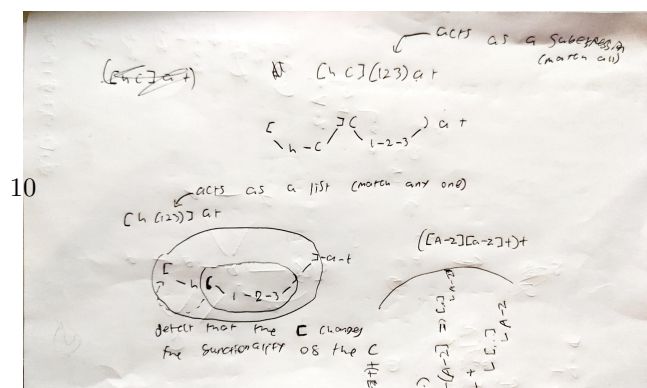 acts as a subexpression
(match all)
([hc]at)
[hc](123)at
[ ]( ) at
h-c 1-2-3
10
acts as a list (match any one)
[h(123)]at
([A-Z][a-z]+)+
[ ]-a-t
h ( )
1-2-3
detect that the [ changes
the functionality of the (